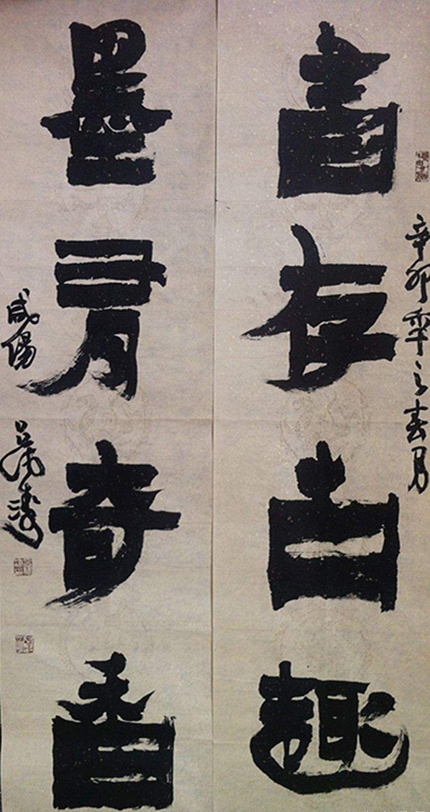 書存古趣
辛卯年之春月
墨有奇香
咸陽